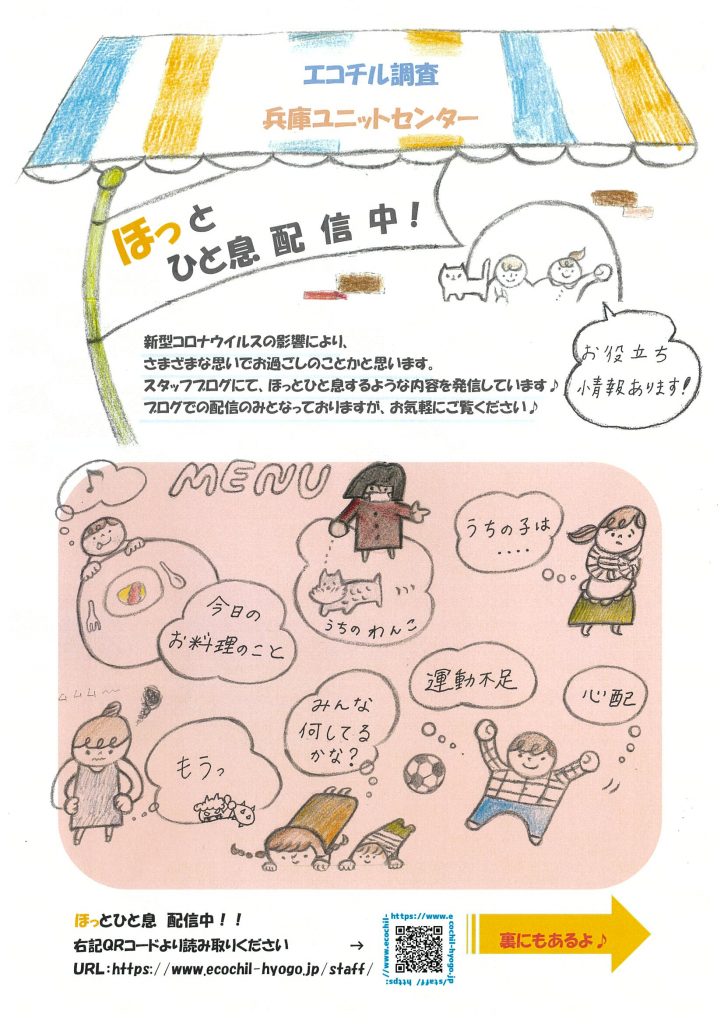 エコチル調査
兵庫ユニットセンター
ほっと
ひと息 配信中!
新型コロナウイルスの影響により、
さまざまな思いでお過ごしのことかと思います。
スタッフブログにて、ほっとひと息するような内容を発信しています♪
ブログでの配信のみとなっておりますが、お気軽にご覧ください♪
お役立ち
情報あります!
MENU
うちの子は
....
今日の
お料理のこと
うちのわんこ
運動不足
心配
みんな
何してる
かな?
ムムム〜
もうっ
ほっとひと息 配信中!!
右記QRコードより読み取りください →
URL:https://www.ecochil-hyogo.jp/staff/
https://www.ecochil-hyogo.jp/staff/
裏にもあるよ♪